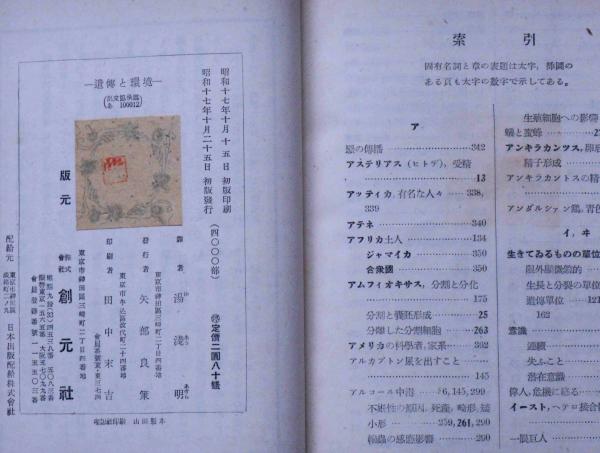 —遺傳と環境—
あ 100012
昭和十七年十月十五日 初版印刷
昭和十七年十月二十五日 初版發行
(四〇〇〇部)
定價二圓八十錢
譯者 湯淺明
東京市神田區三崎町二丁目四番地
發行者 矢部良策
印刷者 田中末吉
東京市神田區三崎町二丁目四番地
版元
株式會社 創元社
配給元
日本出版配給株式會社
山田製本
索引
固有名詞と章の表題は太字, 揷圖の
ある頁も太字の數字で示してある。
ア
惡の傳播 342
アステリアス (ヒトデ), 受精
13
アッティカ, 有名な人々 338,
339
アテネ 340
アフリカ土人 134
ジャマイカ 350
合衆國 350
アムフィオキサス, 分割と分化
175
分割と囊胚形成 25
分離した分割細胞 263
アメリカの科學者, 家系 362
アルカプトン尿を出すこと
145
アルコール中毒 6, 145, 299
不姙性の原因, 死產, 畸形, 矮
小形 259, 261, 290
輪蟲の感應影響 290
生殖細胞への影響
蟻と蜜蜂
アンキラカンツス,
精子形成
アンキラカントスの精
アンダルシァン鷄, 靑色
162
イ, ヰ
生きてゐるものの單位
顯外顯微鏡的
生長と分裂の單位
遺傳單位 121
162
意識
連續
失ふこと
潜在意識
偉人, 危機に慾る
イースト, ヘテロ接合
一眼巨人